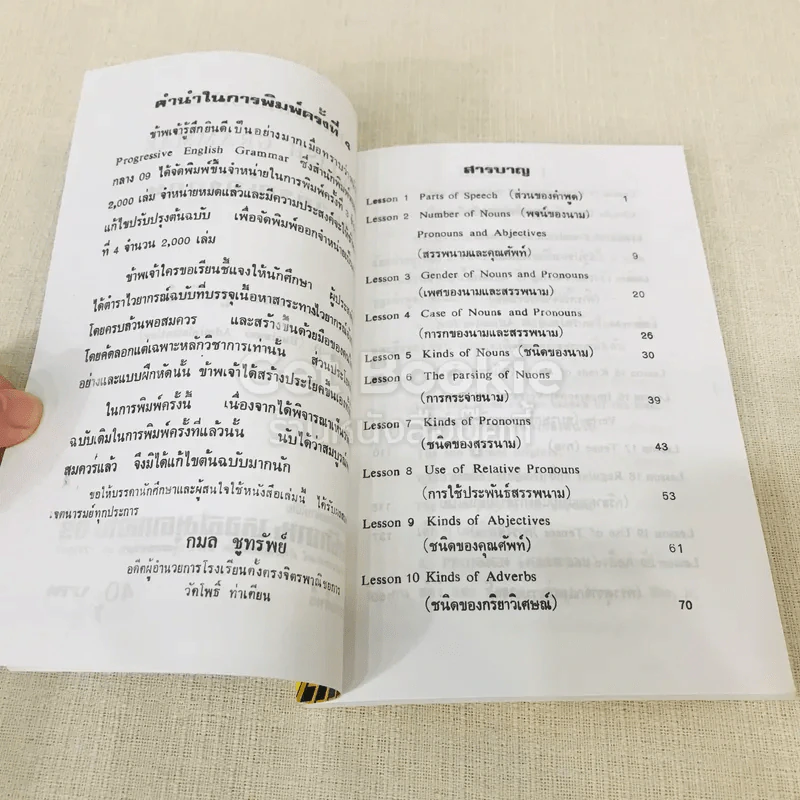 คำนำในการพิมพ์ครั้งที่
ข้าพเจ้ารู้สึกยินดีเป็นอย่างมากเมื่อทราบว่า
Progressive English Grammar ซึ่งสำนักพิมพ์
กลาง 09 ได้จัดพิมพ์ขึ้นจำหน่ายในการพิมพ์ครั้งที่ 3
2,000 เล่ม จำหน่ายหมดแล้วและมีความประสงค์จะให้
แก้ไขปรับปรุงต้นฉบับ เพื่อจัดพิมพ์ออกจำหน่าย
ที่ 4 จำนวน 2,000 เล่ม
ข้าพเจ้าใคร่ขอเรียนชี้แจงให้นักศึกษา
ได้ตำราไวยากรณ์ฉบับที่บรรจุเนื้อหาสาระทางไวยากรณ์
โดยครบถ้วนพอสมควร และสร้างขึ้นด้วยมือของ
โดยคัดลอกแต่เฉพาะหลักวิชาการเท่านั้น ส่วนประโยค
อย่างและแบบฝึกหัดนั้น ข้าพเจ้าได้สร้างประโยคขึ้นเอง
ในการพิมพ์ครั้งนี้ เนื่องจากได้พิจารณาเห็นว่า
ฉบับเดิมในการพิมพ์ครั้งที่แล้วนั้น นับได้ว่าสมบูรณ์
สมควรแล้ว จึงมิได้แก้ไขต้นฉบับมากนัก
ขอให้บรรดานักศึกษาและผู้สนใจใช้หนังสือเล่มนี้ ได้รับ
เจตนารมย์ทุกประการ
กมล ชูทรัพย์
อดีตผู้อำนวยการโรงเรียนตั้งตรงจิตรพาณิชยการ
วัดโพธิ์ ท่าเตียน
สารบาญ
Lesson 1 Parts of Speech (ส่วนของคำพูด) 1
Lesson 2 Number of Nouns (พจน์ของนาม)
Pronouns and Abjectives
(สรรพนามและคุณศัพท์) 9
Lesson 3 Gender of Nouns and Pronouns
(เพศของนามและสรรพนาม) 20
Lesson 4 Case of Nouns and Pronouns
(การกของนามและสรรพนาม) 26
Lesson 5 Kinds of Nouns (ชนิดของนาม) 30
Lesson 6 The parsing of Nuons
(การกระจายนาม) 39
Lesson 7 Kinds of Pronouns
(ชนิดของสรรนาม) 43
Lesson 8 Use of Relative Pronouns
(การใช้ประพันธ์สรรพนาม) 53
Lesson 9 Kinds of Abjectives
(ชนิดของคุณศัพท์) 61
Lesson 10 Kinds of Adverbs
(ชนิดของกริยาวิเศษณ์) 70